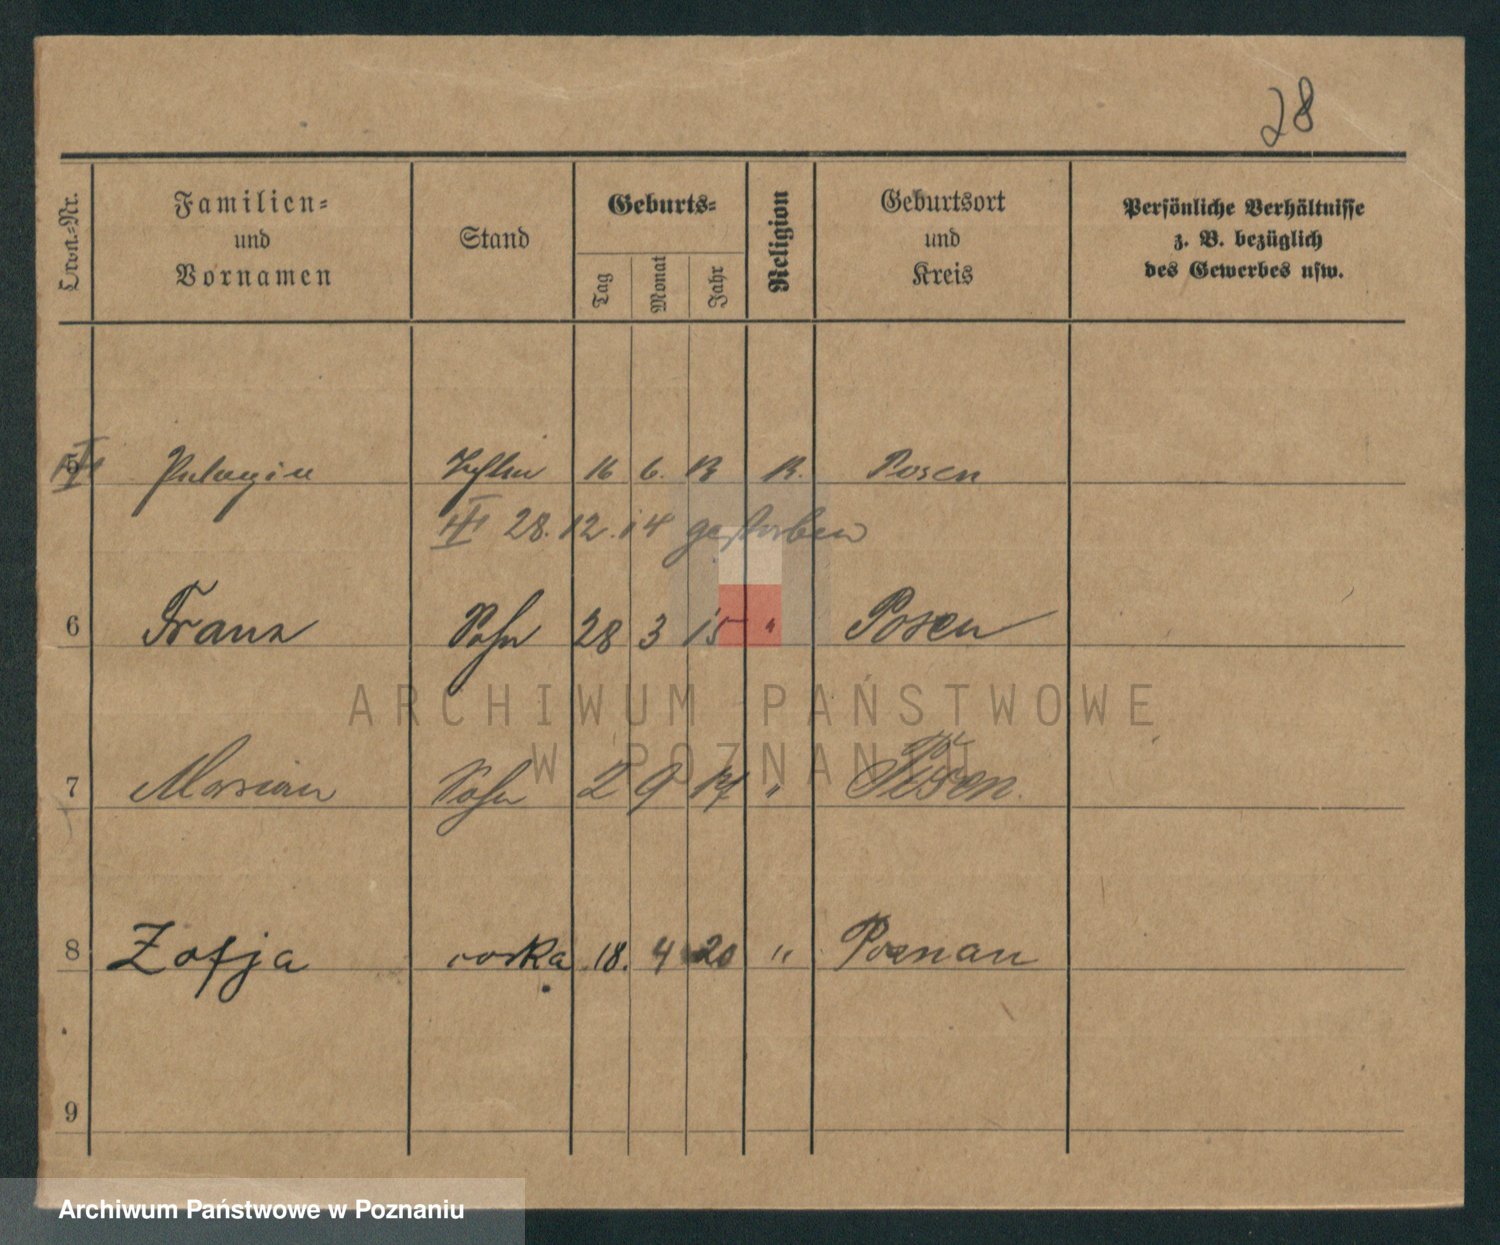 28
Ordn.-Nr.
Familien-
und
Vornamen
Stand
Geburts-
Tag
Monat
Jahr
Religion
Geburtsort
und
Kreis
Persönliche Verhältnisse
z. B. bezüglich
des Gewerbes usw.
5 Pelagia 16 6. 13 R. Posen
28.12.14 gestorben
6 Franz Sohn 28 3 15 " Posen
ARCHIWUM PAŃSTWOWE
W POZNANIU
7 Marian Sohn 2 9 17 " Posen
8 Zofja corka 18. 4 20 " Poznan
9
Archiwum Państwowe w Poznaniu